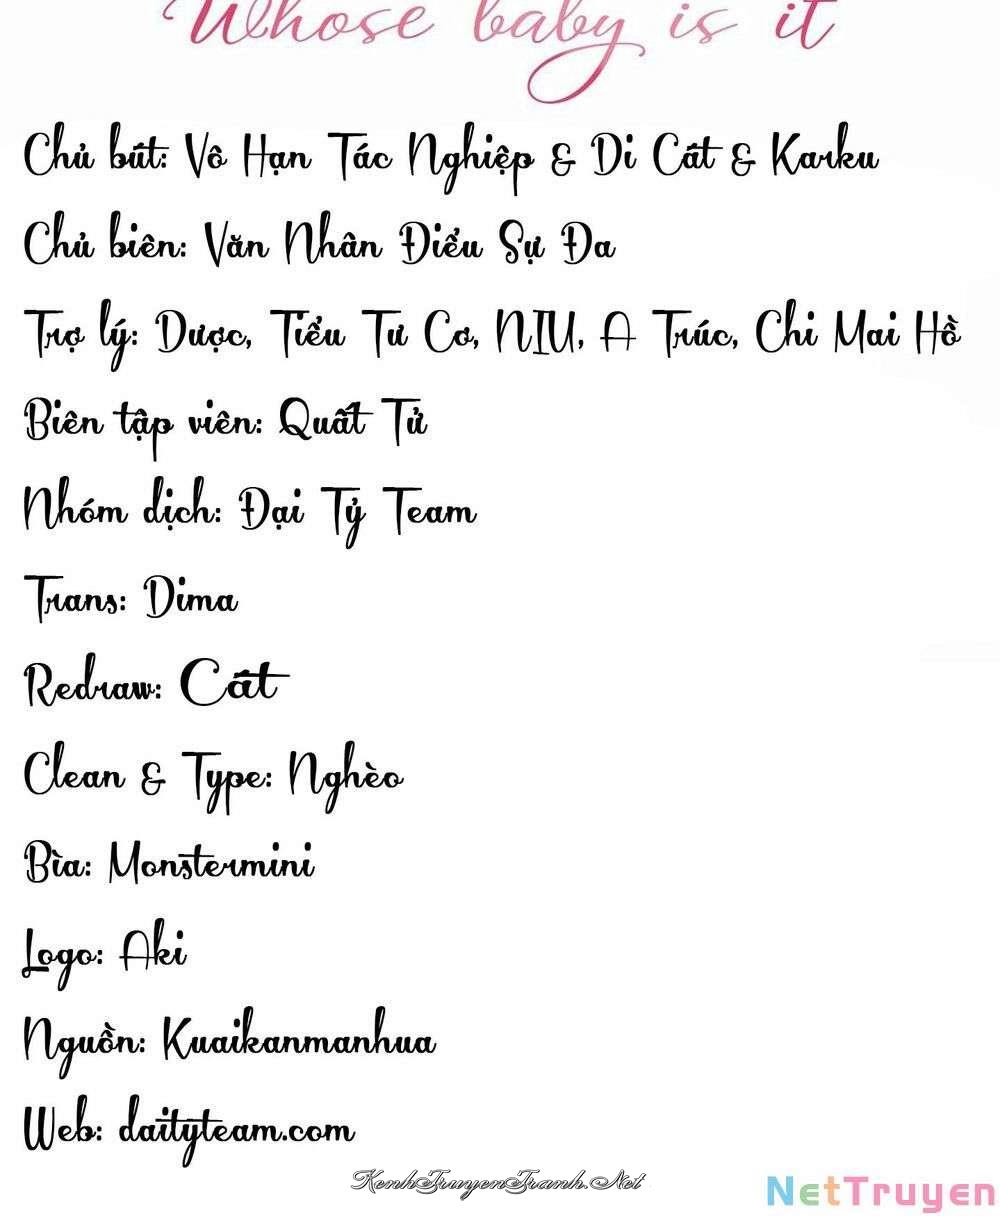 Whose baby is it
Chủ bút: Vô Hạn Tác Nghiệp & Di Cát & Karku
Chủ biên: Văn Nhân Điểu Sự Đa
Trợ lý: Dược, Tiểu Tư Cơ, NIU, A Trúc, Chi Mai Hồ
Biên tập viên: Quất Tử
Nhóm dịch: Đại Tỷ Team
Trans: Dima
Redraw: Cát
Clean & Type: Nghèo
Bìa: Monstermini
Logo: Aki
Nguồn: Kuaikanmanhua
Web: daityteam.com
KenhTruyenTranh.Net
NetTruyen